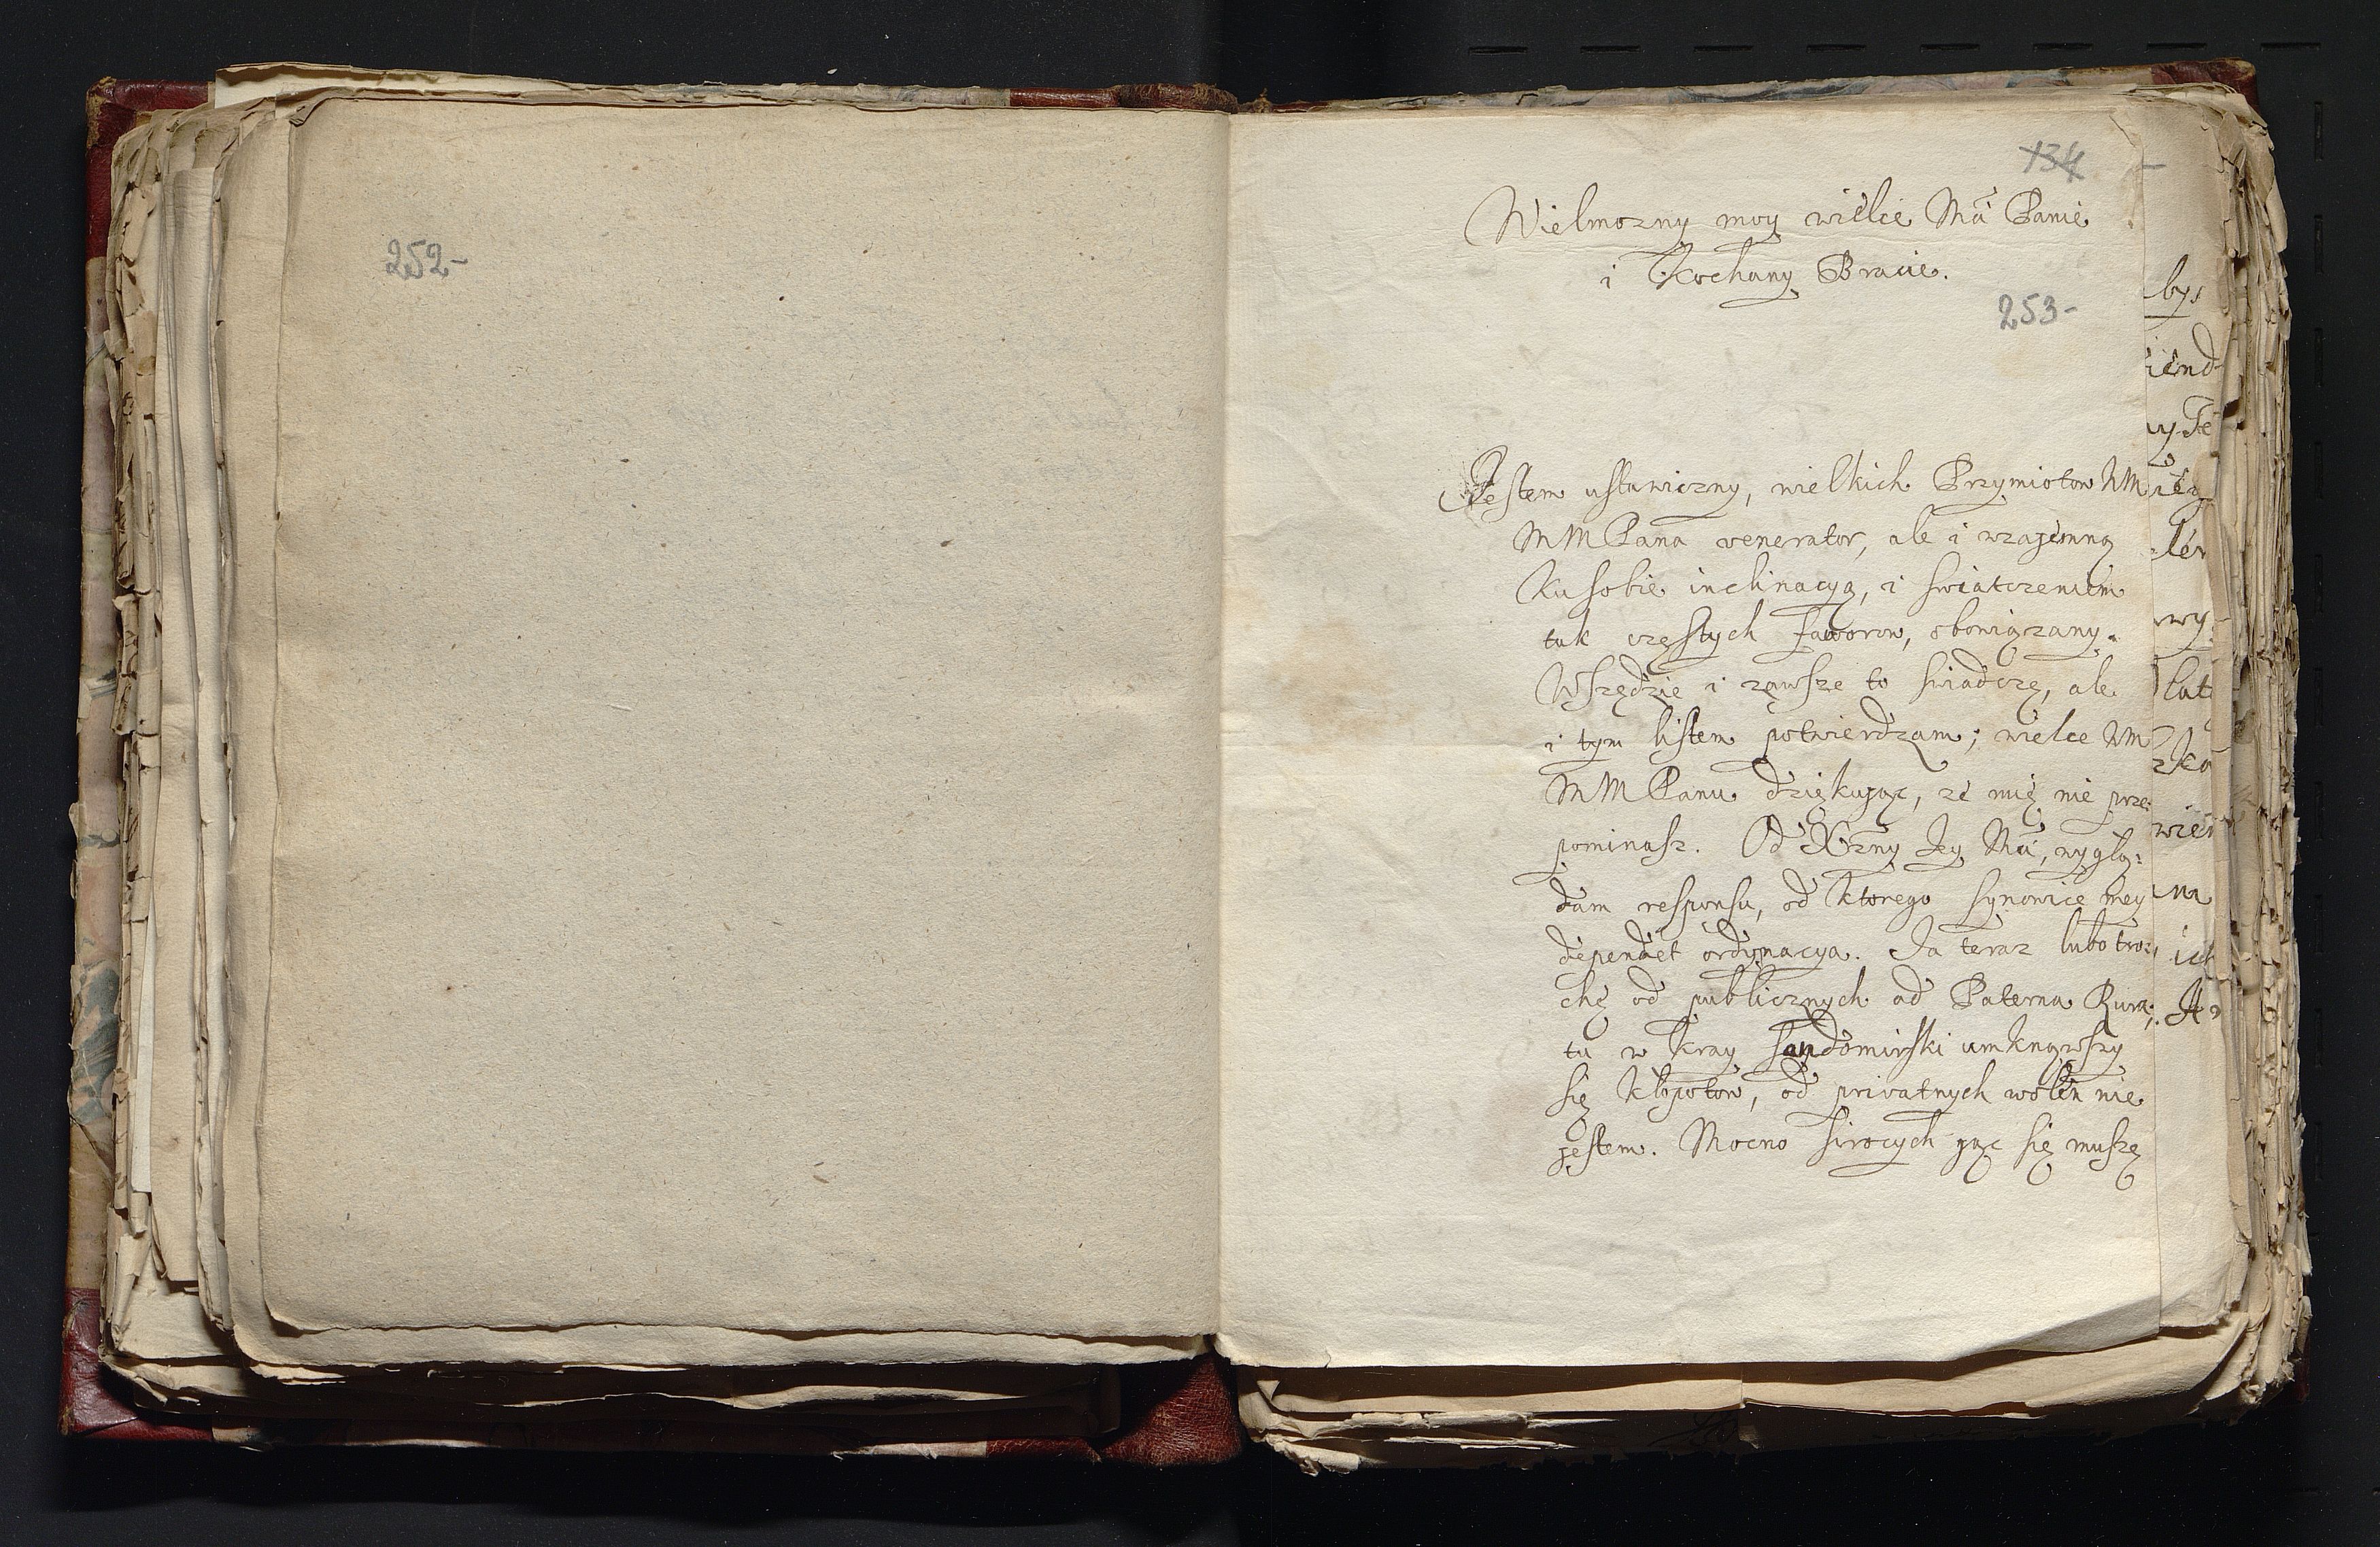 252-
134
Wielmozny moy wielce Mći Panie
i Kochany Bracie.
253-
Jestem ustawiczny, wielkich Przymiotow WM
MM Pana venerator, ale i wzajemną
Ku sobie inclinacyą, i swiatczeniem
tak częstych faworow, obowiązany.
Wszędzie i zawsze to swiadczę, ale
i tym listem potwierdzam; wielce WM
MM Panu dziękując, ze mię nie prze
pominasz. Od Xzny Jey Mći, wyglą:
dam responsu, od ktorego synowice mey
dependet ordynacya. Ja teraz lubo tro:
chę od publicznych ad Paterna Rura,
tu w Kray Sandomirski umknąwszy
się kłopotow, od privatnych wolen nie
jestem. Mocno jąc się muszę
bys
iend
lat
wy
na